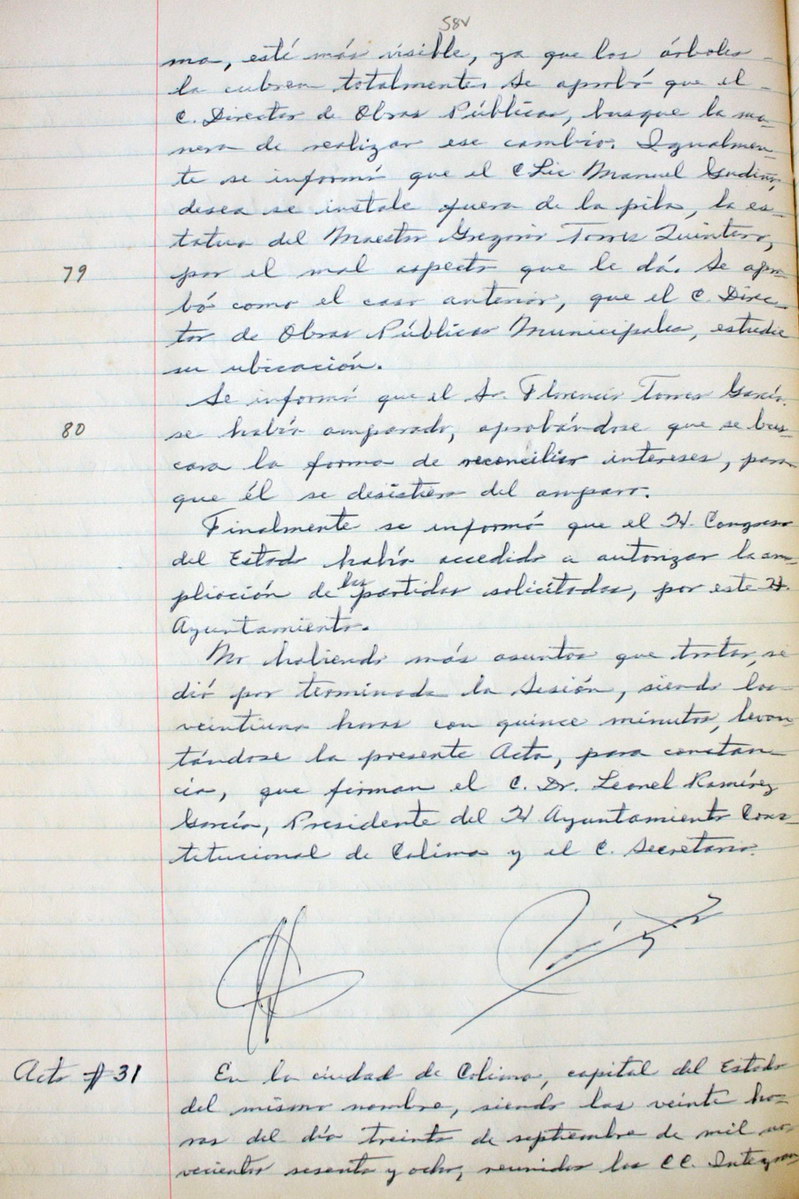 58v
ma, esté más visible, ya que los árboles
la cubren totalmente. Se aprobó que el
C. Director de Obras Públicas, busque la ma-
nera de realizar ese cambio. Igualmen-
te se informó que el C Lic Manuel Gudiño,
desea se instale fuera de la pila, la es-
tatua del Maestro Gregorio Torres Quintero,
79 por el mal aspecto que le dá. Se apro-
bó como el caso anterior, que el C. Direc-
tor de Obras Públicas Municipales, estudie
su ubicación.
Se informó que el Sr. Florencio Torres García,
80 se había amparado, aprobándose que se bus-
cara la forma de reconciliar intereses, para
que él se desistiera del amparo.
Finalmente se informó que el H. Congreso
del Estado había accedido a autorizar la am-
pliación de las partidas solicitadas, por este H.
Ayuntamiento.
No habiendo más asuntos que tratar, se
dió por terminada la Sesión, siendo las
veintiuna horas con quince minutos, levan-
tándose la presente Acta, para constan-
cia, que firman el C. Dr. Leonel Ramírez
García, Presidente del H Ayuntamiento Cons-
titucional de Colima y el C. Secretario.
Acta # 31 En la ciudad de Colima, capital del Estado
del mismo nombre, siendo las veinte ho-
ras del día treinta de septiembre de mil no-
vecientos sesenta y ocho, reunidos los CC. Integran